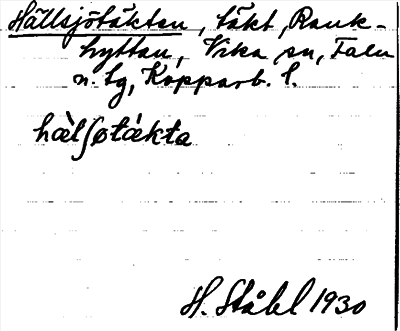 Hällsjötäkten, täkt, Rank-
hyttan, Vika sn, Falu
n. tg, Kopparb. l.
hæ̀lʃøtǽkta
H. Ståhl 1930